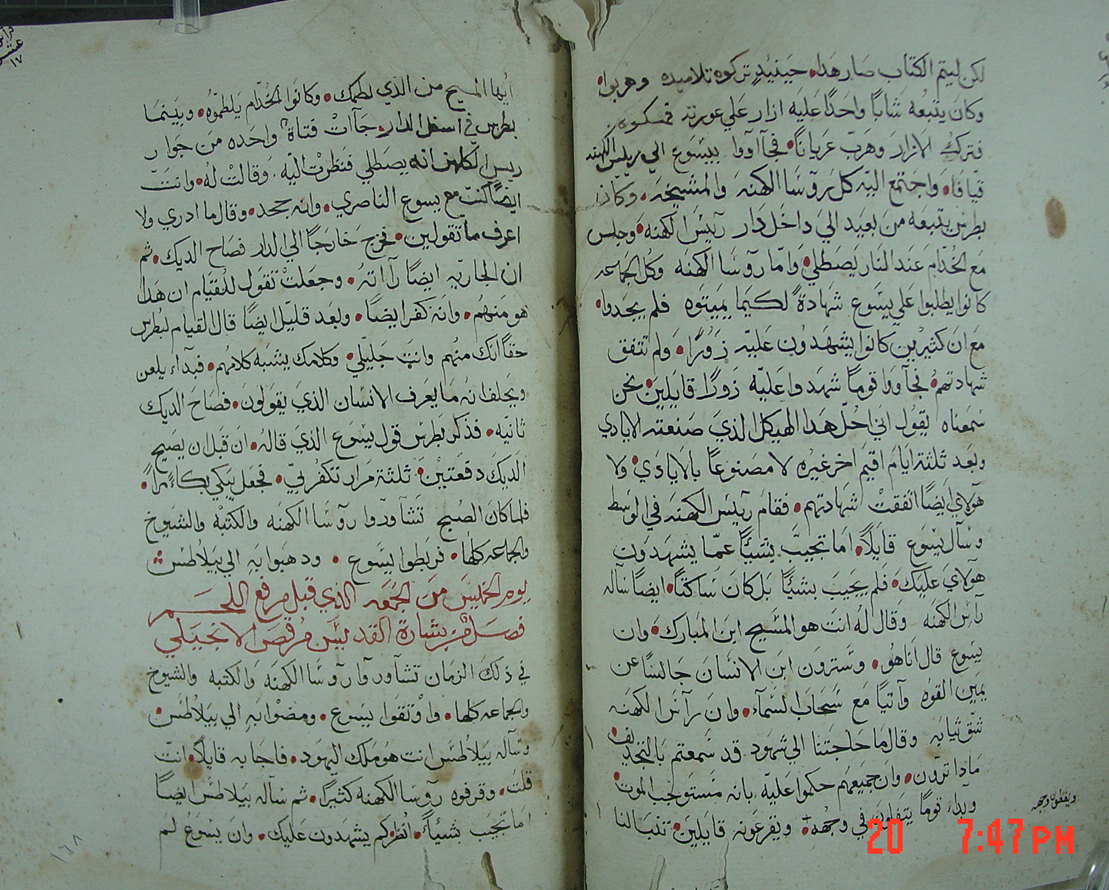 لكن ليتم الكتاب صار هدا • حينيدٍ تركوه تلاميده وهربوا •
وكان يتبعه شابًا واحدًا عليه ازار علي عورته فمسكوه
فترك الازار وهرب عريانًا • فجآاووا بيسوع الي رييس الكهنه
قيافا • واجتمع اليه كل روسا الكهنه والمشيخه • وكان
بطرس يتبعه من بعيد الي داخل دار رييس الكهنه • وجلس
مع الخدام عند النار يصطلي • واما روسا الكهنه وكل الجماعه
كانوا يطلبوا علي يسوع شهادةً لكيما يميتوه فلم يجدوا •
مع ان كثيرين كانوا يشهدون عليه زورًا • ولم تتفق
شهادتهم • فجآاووا قومًا شهدوا عليه زورًا قايلين • نحن
سمعناه يقول اني احل هدا الهيكل الذي صنعته الايادي
وبعد ثلثة ايام اقيم اخر غيره لا مصنوعًا بالايادي • ولا
هولاي ايضًا اتفقت شهادتهم • فقام رييس الكهنه في الوسط
وسآل يسوع قايلاً • اما تجيب بشيًّا عمّا يشهدون
هولاي عليك • فلم يجيب بشيًّا بل كان ساكتًا • ايضًا سآله
رآس الكهنه وقال له انت هو المسيح ابن المبارك • وان
يسوع قال اناهو • وسترون ابن الانسان جالسًا عن
يمين القوه وآتيًا مع سحاب السمآء • وان رآس الكهنه
شق ثيابه وقال ما حاجتنا الي شهود قد سمعتم بالتجديف
مادا ترون • وان جميعهم حكموا عليه بانه مستوجب الموت •
وبدآء قومًا يتفلون في وجهه ويقرعونه قايلين • تنبا لنا
ويغطون وجهه
ايها المسيح من الذي لطمك • وكانوا الخدام يلطموه • وبينما
بطرس في اسفل الدار • جآات فتاة واحده من جوار
رييس الكاهن انه يصطلي فنظرت اليه • وقالت له • وانت
ايضًا كنت مع يسوع الناصري • وانه جحد • وقال ما ادري ولا
اعرف ما تقولين • فخرج خارجًا الي الدار فصاح الديك • ثم
ان الجاريه ايضًا رآاته • وجعلت تقول للقيام ان هدا
هو منهم • وانه كفر ايضًا • وبعد قليل ايضًا قال القيام لبطرس
حقًا انك منهم وانت جليلي • وكلامك يشبه كلامهم • فبدآء يلعن
ويحلف انه ما يعرف الانسان الذي يقولون • فصاح الديك
ثانيه • فذكر بطرس قول يسوع الذي قاله • ان قبل ان يصيح
الديك دفعتين • ثلثة مرار تكفر بي • فجعل يبكي بكآءً مرًا •
فلما كان الصبح تشاوروا روسا الكهنه والكتبه والشيوخ
والجماعه كلها • فربطوا يسوع • ودهبوا به الي بيلاطس
يوم الخميس من الجمعه الذي قبل مرفع اللحم
فصل من بشارة القديس مرقص الانجيلي
في ذلك الزمان تشاوروا روسا الكهنه والكتبه والشيوخ
والجماعه كلها • واوثقوا يسوع • ومضوا به الي بيلاطس •
وسآله بيلاطس انت هو ملك اليهود • فاجابه قايلاً • انت
قلت • وقرفوه روسا الكهنه كثيرًا • ثم سآله بيلاطس ايضًا
اما تجيب شيئًا • انظر كم يشهدون عليك • وان يسوع لم
١٦٨
20 7:47 PM